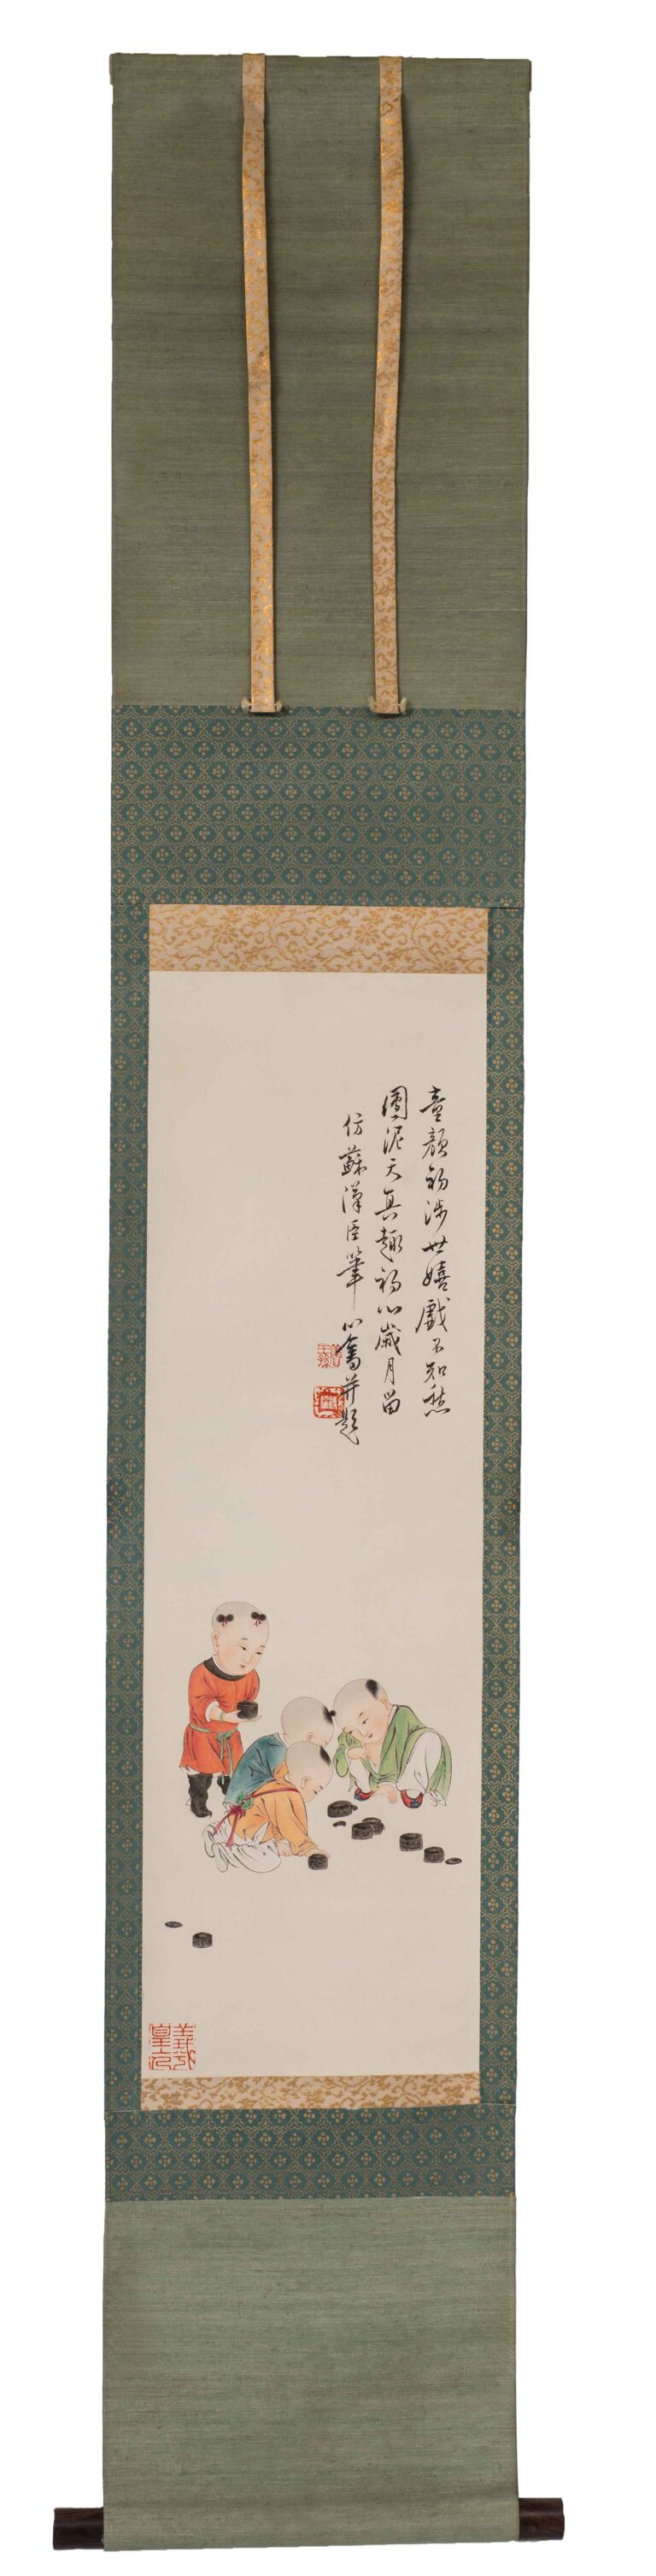 童顏初涉世嬉戲不知愁
團泥天真趣初心歲月留
仿蘇漢臣筆 心畬并題